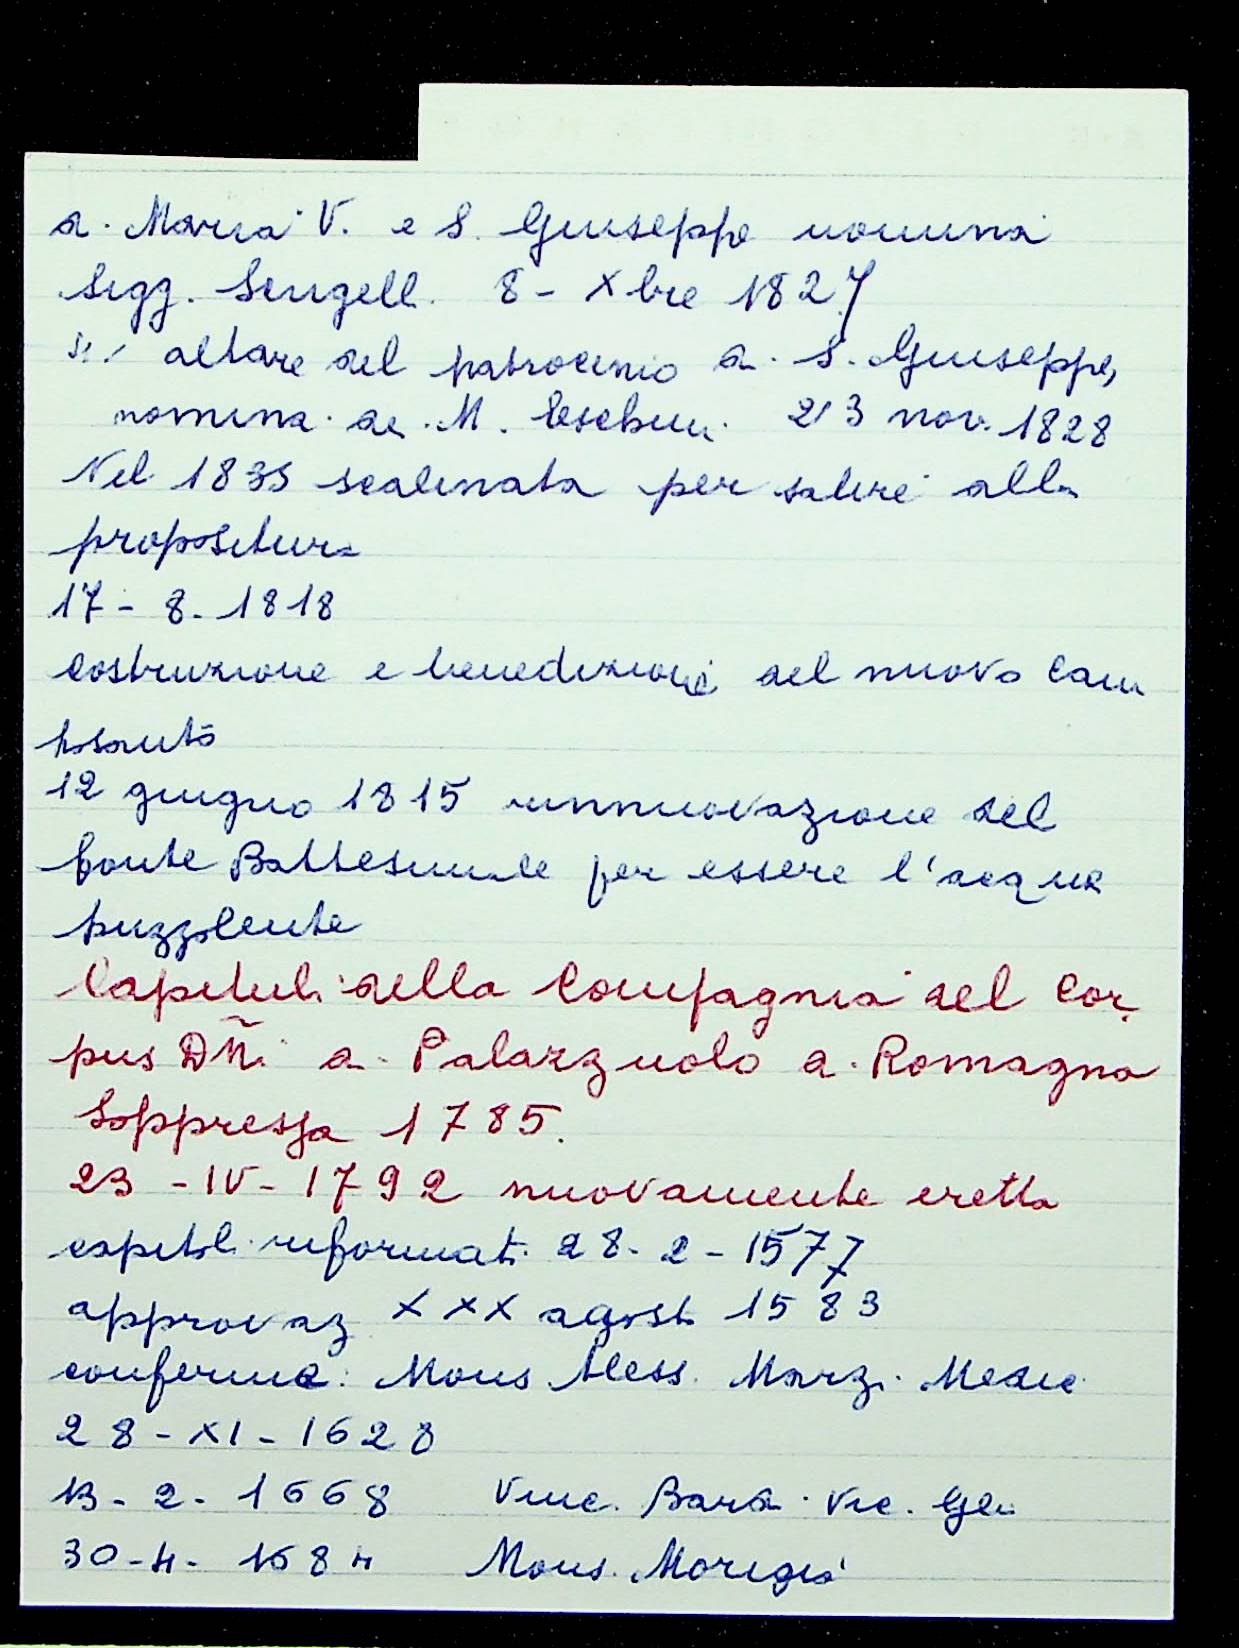 di Maria V. e S. Giuseppe nomina
Sigg. Sengell. 8 - Xbre 1827
altare del patrocinio di S. Giuseppe,
nomina de M. 23 nov. 1828
Nel 1835 scalinata per salire alla
propositura
17 - 8 - 1818
Costruzione e benedizione del nuovo Cam
posanto
12 giugno 1815 rinnuovazione del
fonte Battesimale per essere l'acqua
puzzolente
Capitoli della Compagnia del Cor,
pus Dñi di Palazzuolo di Romagna
Soppressa 1785.
23 - IV - 1792 nuovamente eretta
capitoli riformati 28 - 2 - 1577
approvaz XXX agosto 1583
conferma: Mons Aless. Marzi Medic
28 - XI - 1628
13 - 2 - 1668 Vinc. Bardi Vic. Gen
30 - 4 - 1684 Mons. Morigia